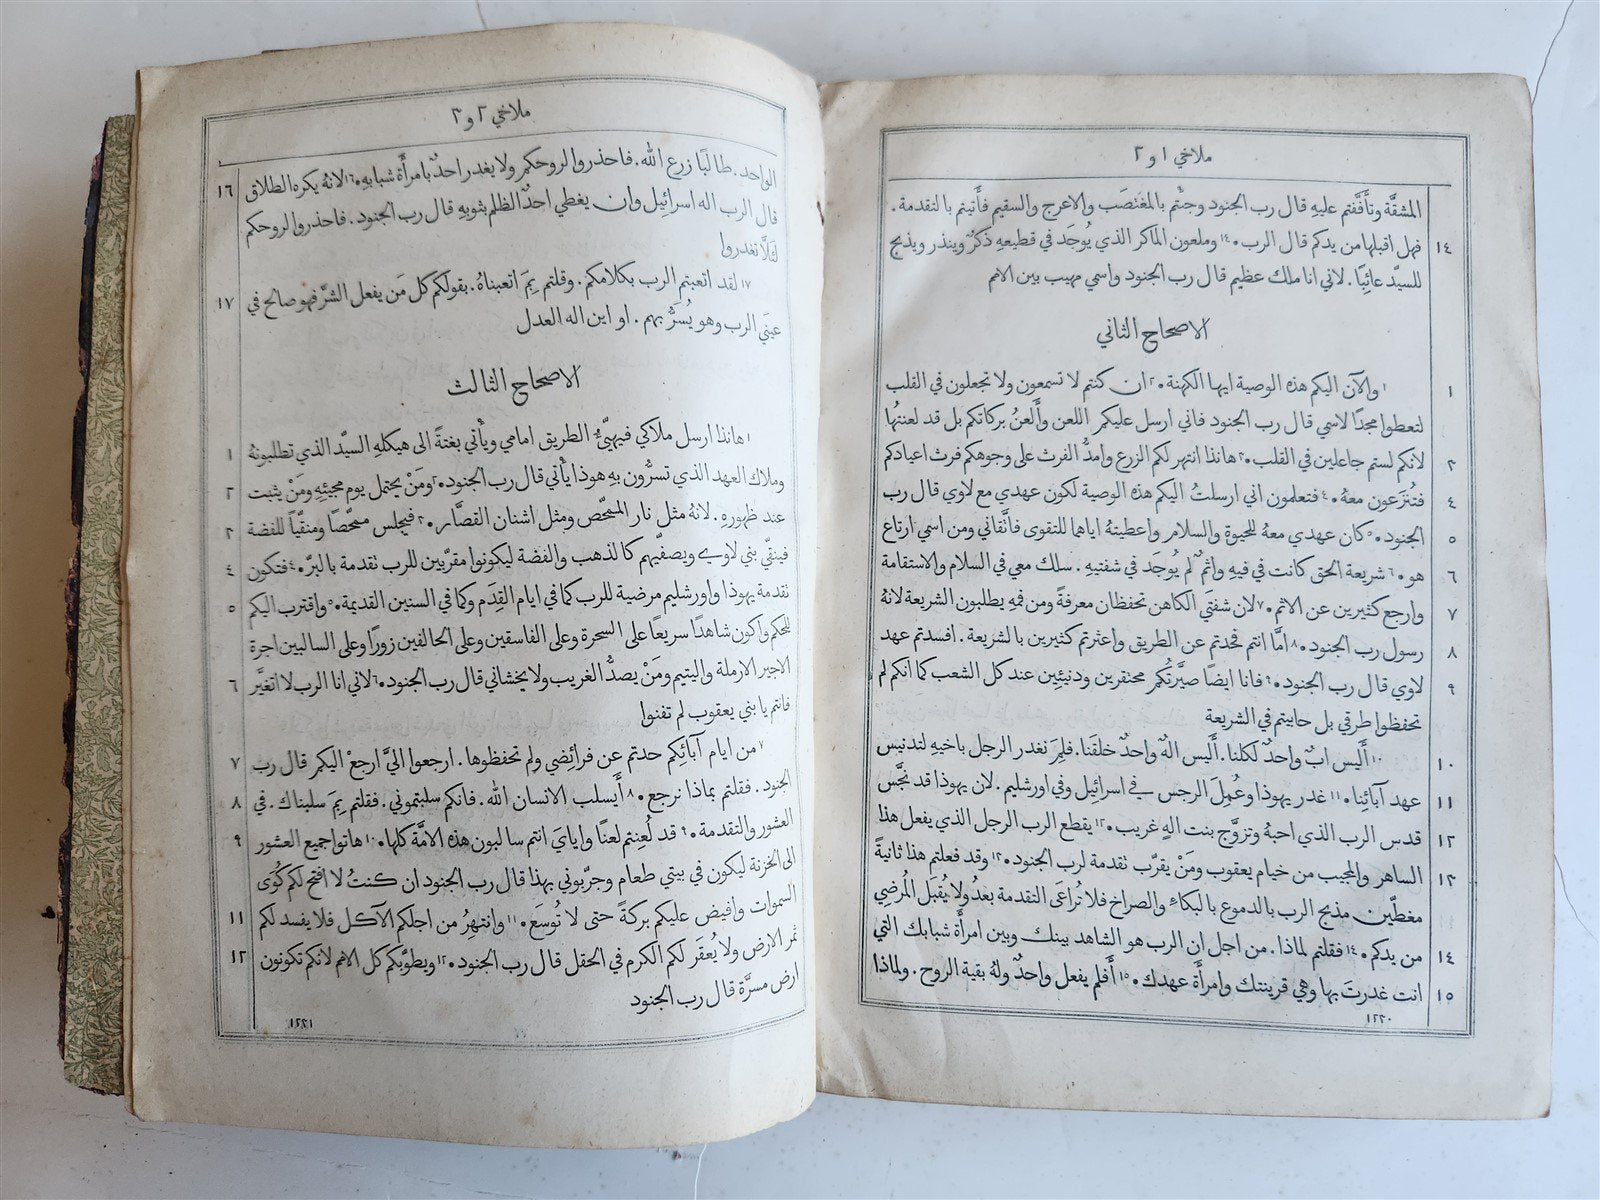 ملاخي ١ و ٢
المشقَّة وتأَفَّفتم عليهِ قال رب الجنود وجئْتم بالمغتصَب والاعرج والسقيم فأَتيتم بالتقدمة.
١٤ فهل اقبلها من يدكم قال الرب • ١٤ وملعون الماكر الذي يُوجَد في قطيعهِ ذكرٌ وينذر ويذبح
للسيّد عائِبًا. لاني انا ملك عظيم قال رب الجنود واسمي مهيب بين الامم
الاصحاح الثاني
١ ١ والآن اليكم هذه الوصية ايها الكهنة • ٢ ان كنتم لا تسمعون ولا تجعلون في القلب
لتعطوا مجدًا لاسمي قال رب الجنود فاني ارسل عليكم اللعن وأَلعنُ بركاتكم بل قد لعنتها
٣ لانكم لستم جاعلين في القلب • ٣ هانذا انتهر لكم الزرع وامدُّ الفرث على وجوهكم فرث اعيادكم
٤ فتُنزَعون معهُ • ٤ فتعلمون اني ارسلتُ اليكم هذه الوصية لكون عهدي مع لاوي قال رب
٥ الجنود • ٥ كان عهدي معهُ للحيوة والسلام واعطيتهُ اياهما للتقوى فاتَّقاني ومن اسمي ارتاع
٦ هو • ٦ شريعة الحق كانت في فيهِ واثمٌ لم يُوجَد في شفتيهِ. سلك معي في السلام والاستقامة
٧ وارجع كثيرين عن الاثم • ٧ لان شفتَي الكاهن تحفظان معرفةً ومن فمهِ يطلبون الشريعة لانهُ
٨ رسول رب الجنود • ٨ امَّا انتم فحدتم عن الطريق واعثرتم كثيرين بالشريعة. افسدتم عهد
٩ لاوي قال رب الجنود • ٩ فانا ايضًا صيَّرتُكم محتقرين ودنيئِين عند كل الشعب كما انكم لم
تحفظوا طرقي بل حابيتم في الشريعة
١٠ ١٠ أَليس ابٌ واحدٌ لكلنا. أَليس الهٌ واحدٌ خلقَنا. فلِمَ نغدر الرجل باخيهِ لتدنيس
١١ عهد آبائِنا • ١١ غدر يهوذا وعُمِلَ الرجس في اسرائيل وفي اورشليم. لان يهوذا قد نجَّس
١٢ قدس الرب الذي احبهُ وتزوَّج بنت الهٍ غريب • ١٢ يقطع الرب الرجل الذي يفعل هذا
١٣ الساهر والمجيب من خيام يعقوب ومَنْ يقرّب تقدمة لرب الجنود • ١٣ وقد فعلتم هذا ثانيةً
مغطّين مذبح الرب بالدموع بالبكاءِ والصراخ فلا تُراعَى التقدمة بعدُ ولا يُقبَل المُرضي
١٤ من يدكم • ١٤ فقلتم لماذا. من اجل ان الرب هو الشاهد بينك وبين امرأَة شبابك التي
١٥ انت غدرتَ بها وهي قرينتك وامرأَة عهدك • ١٥ أَفلم يفعل واحدٌ ولهُ بقية الروح. ولماذا
١٢٣٠
ملاخي ٢ و ٣
الواحد. طالبًا زرع الله. فاحذروا لروحكم ولا يغدر احدٌ بامرأَة شبابهِ • ١٦ لانهُ يكره الطلاق
١٦ قال الرب اله اسرائيل وان يغطي احدٌ الظلم بثوبهِ قال رب الجنود. فاحذروا لروحكم
لئَلَّا تغدروا
١٧ لقد اتعبتم الرب بكلامكم. وقلتم بِمَ اتعبناهُ. بقولكم كل مَن يفعل الشرَّ فهو صالح في
١٧ عينَي الرب وهو يُسَرُّ بهم. او اين اله العدل
الاصحاح الثالث
١ ١ هانذا ارسل ملاكي فيهيّئُ الطريق امامي ويأْتي بغتةً الى هيكلهِ السيّد الذي تطلبونهُ
٢ وملاك العهد الذي تسرُّون به هوذا يأْتي قال رب الجنود • ٢ ومَنْ يحتمل يوم مجيئِهِ ومَنْ يثبت
٣ عند ظهورهِ. لانهُ مثل نار الممحّص ومثل اشنان القصَّار • ٣ فيجلس ممحّصًا ومنقّيًا للفضة
٤ فينقّي بني لاوي ويصفّيهم كالذهب والفضة ليكونوا مقرّبين للرب تقدمة بالبرّ • ٤ فتكون
٥ تقدمة يهوذا واورشليم مرضية للرب كما في ايام القِدَم وكما في السنين القديمة • ٥ واقترب اليكم
للحكم واكون شاهدًا سريعًا على السحرة وعلى الفاسقين وعلى الحالفين زورًا وعلى السالبين اجرة
٦ الاجير الارملة واليتيم ومَنْ يصدُّ الغريب ولا يخشاني قال رب الجنود • ٦ لاني انا الرب لا اتغيَّر
فانتم يا بني يعقوب لم تفنوا
٧ ٧ من ايام آبائِكم حدتم عن فرائِضي ولم تحفظوها. ارجعوا اليَّ ارجعْ اليكم قال رب
٨ الجنود. فقلتم بماذا نرجع • ٨ أَيسلب الانسان الله. فانكم سلبتموني. فقلتم بِمَ سلبناك. في
٩ العشور والتقدمة • ٩ قد لُعِنتم لعنًا واياي انتم سالبون هذه الامَّة كلها • ١٠ هاتوا جميع العشور
الى الخزنة ليكون في بيتي طعام وجرّبوني بهذا قال رب الجنود ان كنتُ لا افتح لكم كُوَى
١١ السموات وافيض عليكم بركةً حتى لا تُوسَع • ١١ وانتهِرُ من اجلكم الآكل فلا يفسد لكم
١٢ ثمر الارض ولا يُعقَر لكم الكرم في الحقل قال رب الجنود • ١٢ ويطوّبكم كل الامم لانكم تكونون
ارض مسرَّة قال رب الجنود
١٢٣١